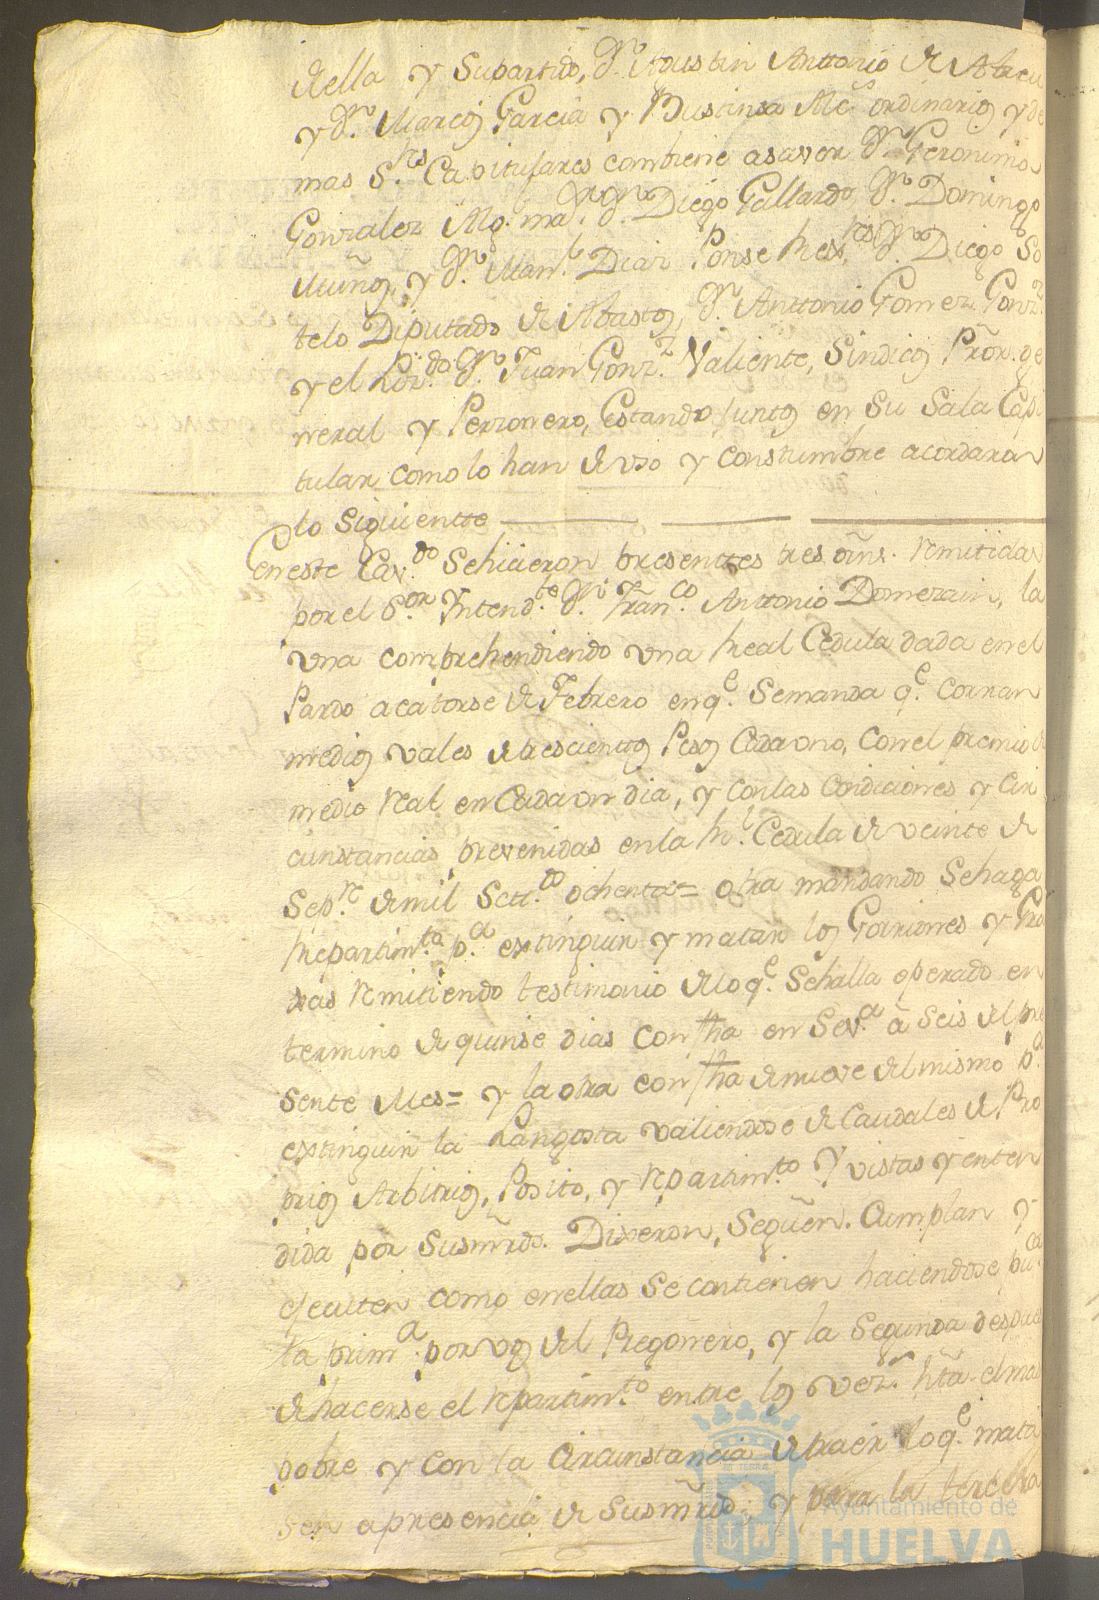 della y Supartido, Dn. Agustin Anttonio de Abreu
y Dn. Marcos Garcia y Bustinsa Alcs ordinarios y de
mas Sres. Capitulares combiene asaver Dn. Geronimo
Gonzalez Alg. mar. Dn. Diego Gallardo, Dn. Domingo
Muños, y Dn. Manl. Diaz Ponse Rexres. Dn. Diego So
telo Diputado de Abastos, Dn. Anttonio Gomez Gonz
y el Dn. Juan Gonz. Valiente, Sindicos Pror. ge
neral y Perzonero, Estando juntos en su Sala Capi
tular como lo han de uso y constumbre acordaron
lo siguiente
En este Cavdo. Sehicieron presenttes tres orns. remitidas
por el Sor. Yntendte. Dn. Franco. Anttonio Domezain, la
vna comprehendiendo vna Real Cedula dada en el
Pardo acatorse de Febrero en qe. Semanda qe. corran
medios vales de trescientos Pesos Cada vno, con el premio de
medio real en Cada vn dia, y con las Condiciones y Cir
cunstancias prevenidas en la Rl. Cedula de veinte de
Sepre. de mil Settdo ochenta = otra mandando Sehaga
Repartimto. pa. extinguir y matar los Gorriones y Gra
xas remitiendo testimonio de lo qe. Sehalla operado en
termino de quinse dias con fha en Seva. à Seis del pre
sente Mes = y la otra con fha de nueve del mismo pa.
extinguir la Langosta valiendose de Caudales de Pro
prios Arbitrios, Posito, y repartimto. Y vistas y enten
dida por Susmrds. Dixeron, Seguen. Cumplan y
ejecuten como en ellas Se contienen haciendose puca
la prima. por vos del Pregonero, y la Segunda despues
de hacerse el repartimto. entre los vezs. hta. el mas
pobre y con la Circunstancia de traer lo qe. mata
sen apresencia de Susmrds., y para la tercera
Ayuntamiento de
HUELVA